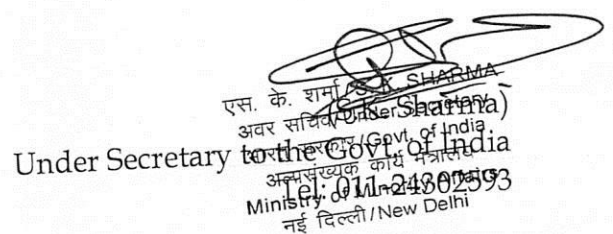 एस. के. शर्मा/S. K. SHARMA
अवर सचिव/Under Secretary
भारत सरकार/Govt. of India
अल्पसंख्यक कार्य मंत्रालय
Ministry of Minority Affairs
नई दिल्ली/New Delhi
(S.K. Sharma)
Under Secretary to the Govt. of India
Tel: 011-24302593